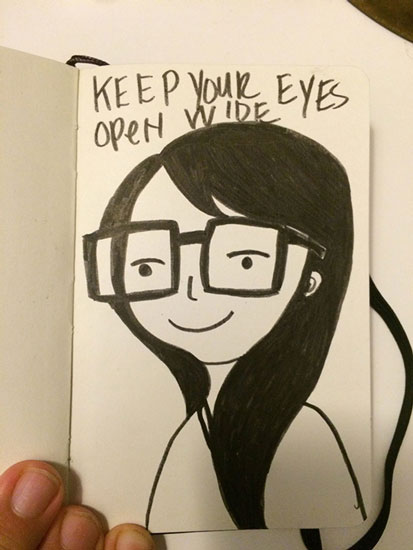 KEEP YOUR EYES
OPEN WIDE